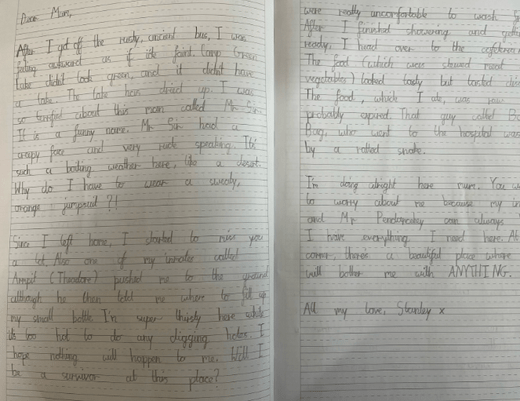 Dear Mum,
After I got off the rusty, ancient bus, I was
feeling awkward as if ide faint. Camp Green
Lake didn't look green, and it didn't have
a lake. The lake has dried up. I was
so terrified about this man called Mr. Sir.
It is a funny name. Mr Sir had a
crapy face and very rude speaking. It's
such a boiling weather here, like a desert.
Why do I have to wear a sweaty,
orange jumpsuit?!
Since I left home, I started to miss you
a lot. Also one of my inmates called
Armpit (Theodore) pushed me to the ground
although he then told me where to fill up
my small bottle. I'm super thirsty here while
it's too hot to do any digging holes. I
hope nothing will happen to me. Will I
be a survivor at this place?
were really uncomfortable to wash
After I finished showering, and
ready, I head over to the
The food (which was stewed meat
vegetables) looked tasty but tasted
The food, which I ate, was
probably expired. That guy called
Bag, who went to the hospital was
by a rattle snake.
I'm doing alright here mum. You
to worry about me because my
and Mr Pendanski can always
I have everything I need here.
corner, there's a beautiful place where
will bother me with ANYTHING.
All my love, Stanley x